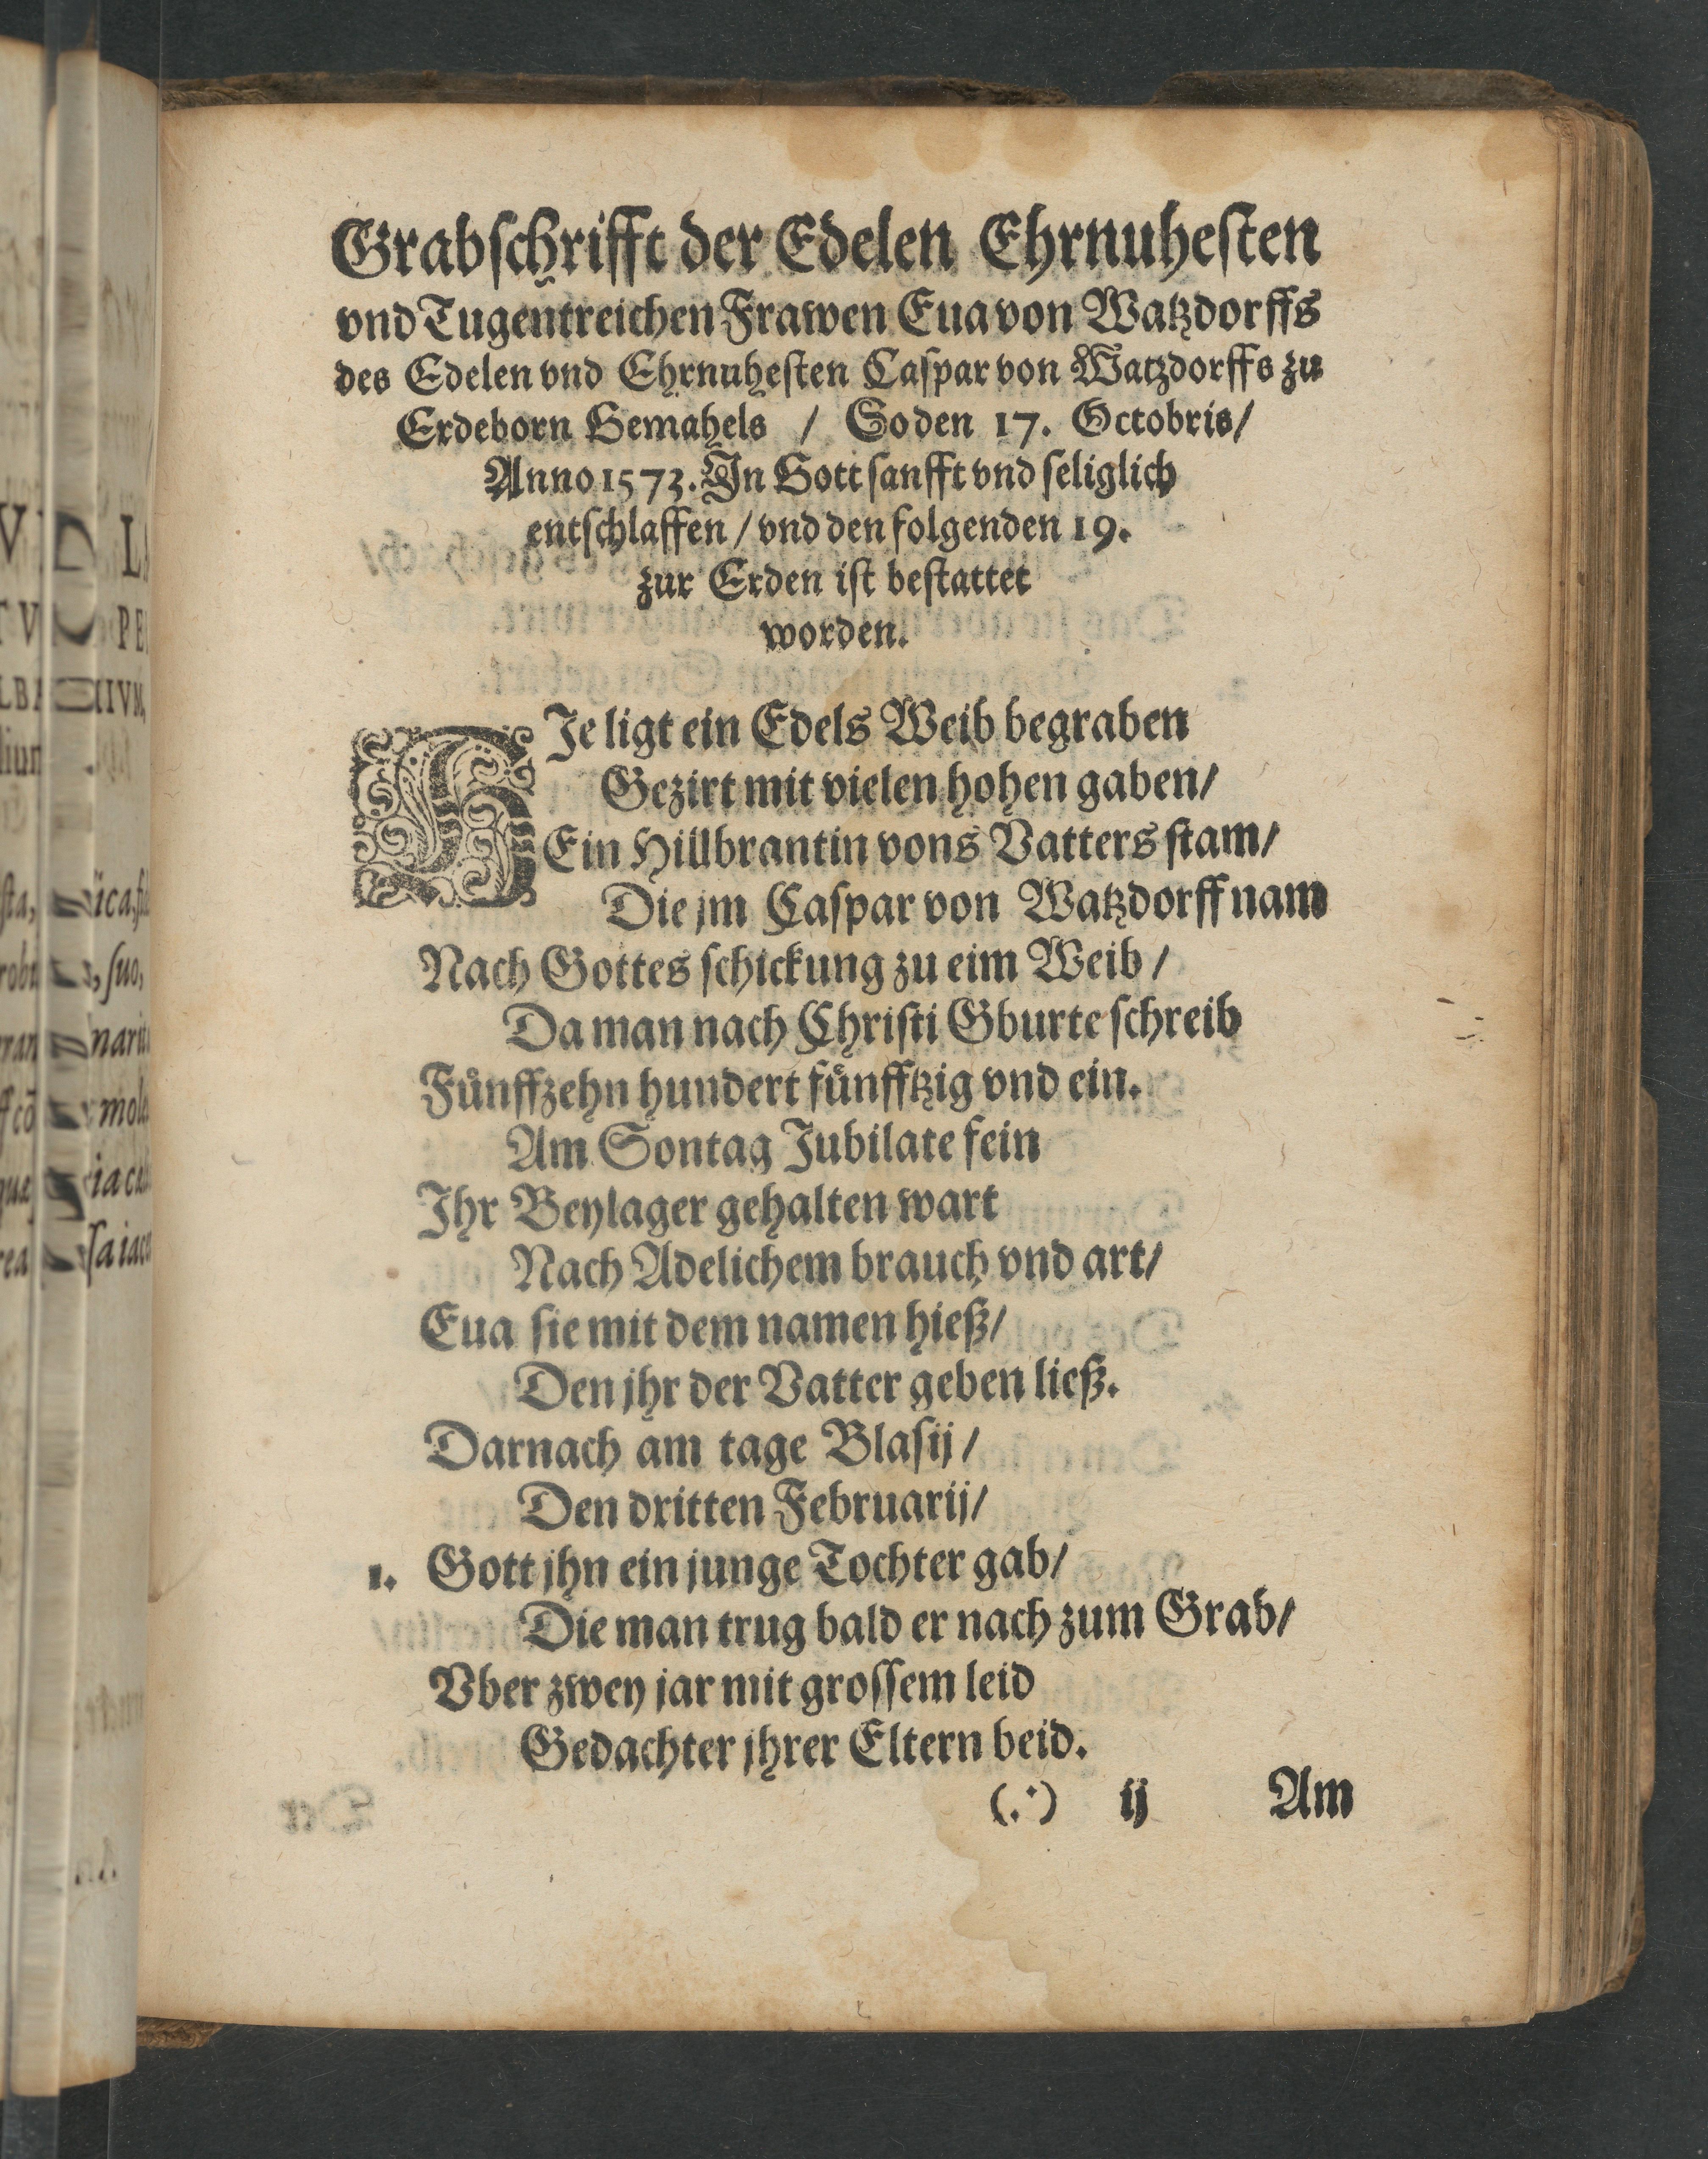 Grabſchrifft der Edelen Ehrnuheſten
vnd Tugentreichen Frawen Eua von Watzdorffs
des Edelen vnd Ehrnuheſten Caſpar von Watzdorffs zu
Erdeborn Gemahels / So den 17. Octobris/
Anno 1573. In Gott ſanfft vnd ſeliglich
entſchlaffen / vnd den folgenden 19.
zur Erden iſt beſtattet
worden.
HIe ligt ein Edels Weib begraben
Gezirt mit vielen hohen gaben/
Ein Hillbrantin vons Vatters ſtam/
Die jm Caſpar von Watzdorff nam
Nach Gottes ſchickung zu eim Weib /
Da man nach Chriſti Gburte ſchreib
Fuͤnffzehn hundert fuͤnfftzig vnd ein.
Am Sontag Jubilate fein
Ihr Beylager gehalten wart
Nach Adelichem brauch vnd art/
Eua ſie mit dem namen hieß/
Den jhr der Vatter geben ließ.
Darnach am tage Blaſij /
Den dritten Februarij/
1. Gott jhn ein junge Tochter gab/
Die man trug bald er nach zum Grab/
Vber zwey jar mit groſſem leid
Gedachter jhrer Eltern beid.
(.·) ij Am